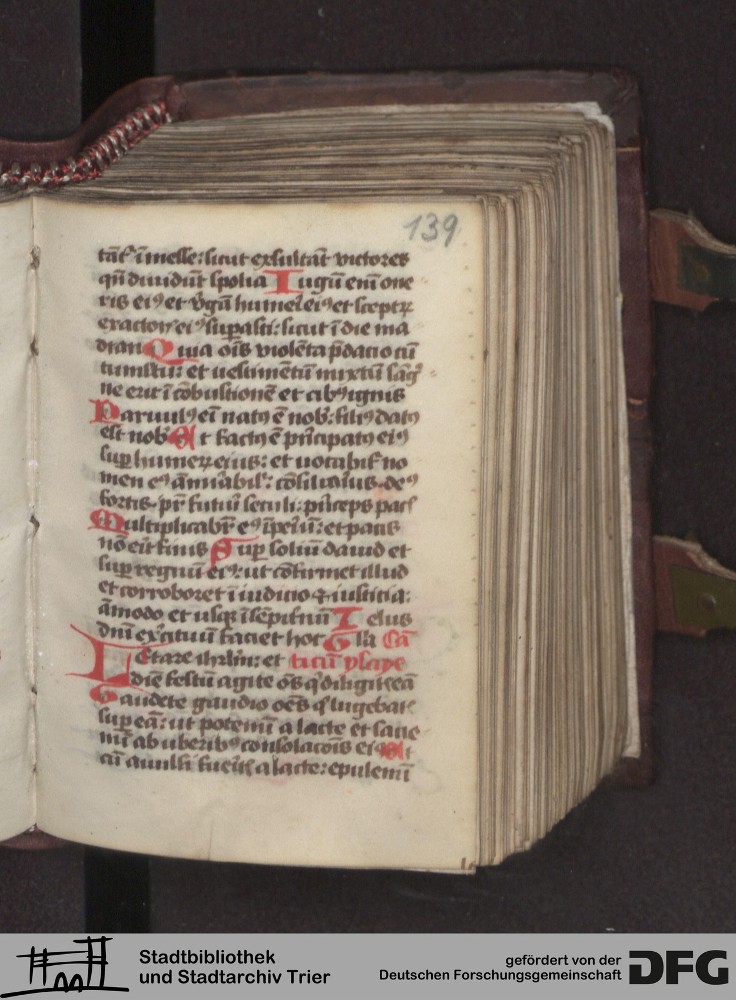 139
tāt᷑ ī messe: sicut exsultāt victores
qn̄ diuidūt spolia Iugū enī one
ris eiꝰ et v̓gā humeri eiꝰ et sceptꝝ
exactorꝭ eiꝰ supasti: sicut ī die ma
dian Quia oīs violēta p̄dacio cū
tumltu: et uestimentū mixtū sāg
ne erit ī cōbustionē et cibꝰ ignis
Paruulꝰ eī natꝰ ē nob: filiꝰ datꝰ
est nob Et factꝰ ē prīcipatꝰ eiꝰ
sup humeꝝ eius: et uocabit᷑ no
men eꝰ āmirabil': cōsiliariꝰ deꝰ
fortis pr̄ futuri seculi: prīceps pacꝭ
Multiplicabr̄ eꝰ īperiū: et pacis
nō erit finis Sup soliū dauid et
sup regnū eiꝰ: ut cōfirmet illud
et corroboret ī iudicio ⁊ iusticia:
āmodo et usqꝫ ī sēpitnū Zelus
dnī exercituū faciet hoc Glīa Cā
Letare ihrlm̄: et ticū ysaye
diē festū agite oēs q̓ diligit᷑ eā
Gaudete gaudio oēs q̓ lugebat᷑
sup eā: ut potemī a lacte et sacie
mī ab uberibꝰ consolacōis eiꝰ Et
cū auulsi fuerit᷑ a lacte: epulemī
Stadtbibliothek
und Stadtarchiv Trier
gefördert von der
Deutschen Forschungsgemeinschaft
DFG